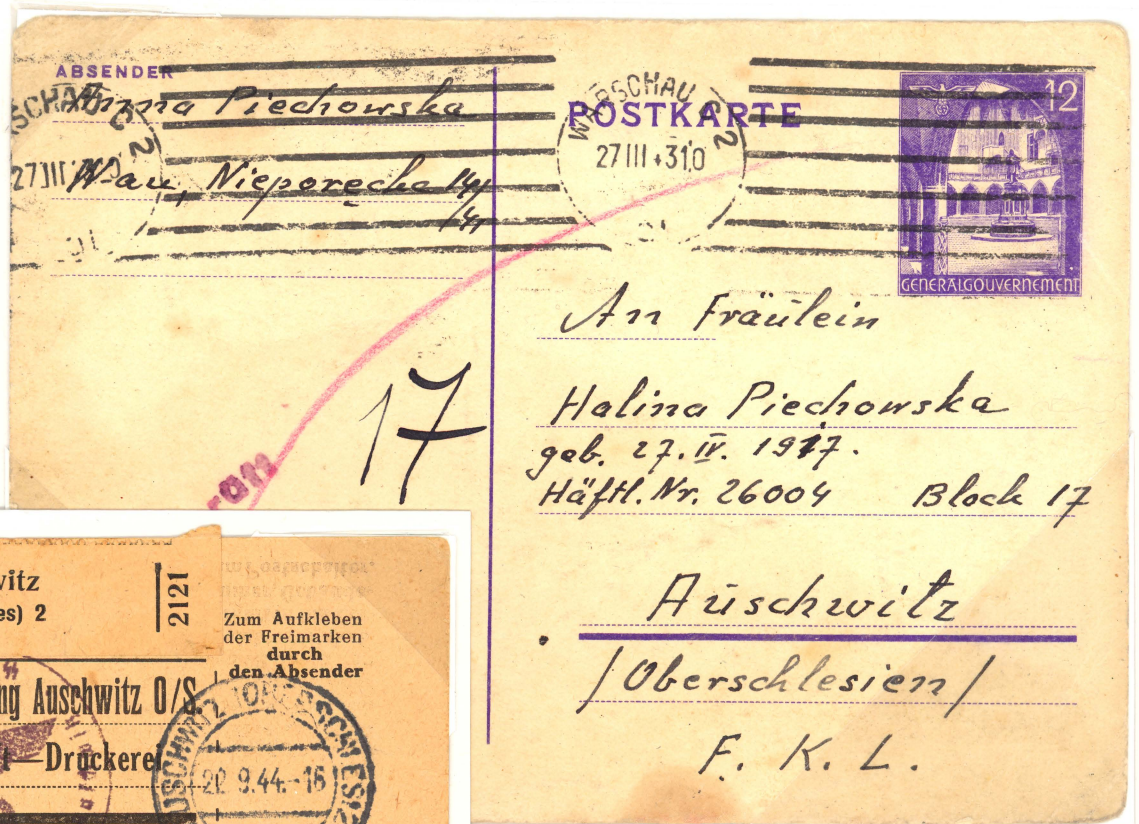 ABSENDER
Anna Piechowska
W-au, Nieporęcka 14/
WARSCHAU C 2
27 III 310
POSTKARTE
WARSCHAU C 2
27 III +31.0
12
GENERALGOUVERNEMENT
An Fräulein
Halina Piechowska
geb. 27. IV. 1917.
Häftl. Nr. 26004 Block 17
Auschwitz
/Oberschlesien/
F. K. L.
17
witz
es) 2
2121
Zum Aufkleben
der Freimarken
durch
den Absender
ng Auschwitz O/S.
t—Druckerei
USCHWITZ (OBERSCHLES) 2
20.9.44.-16